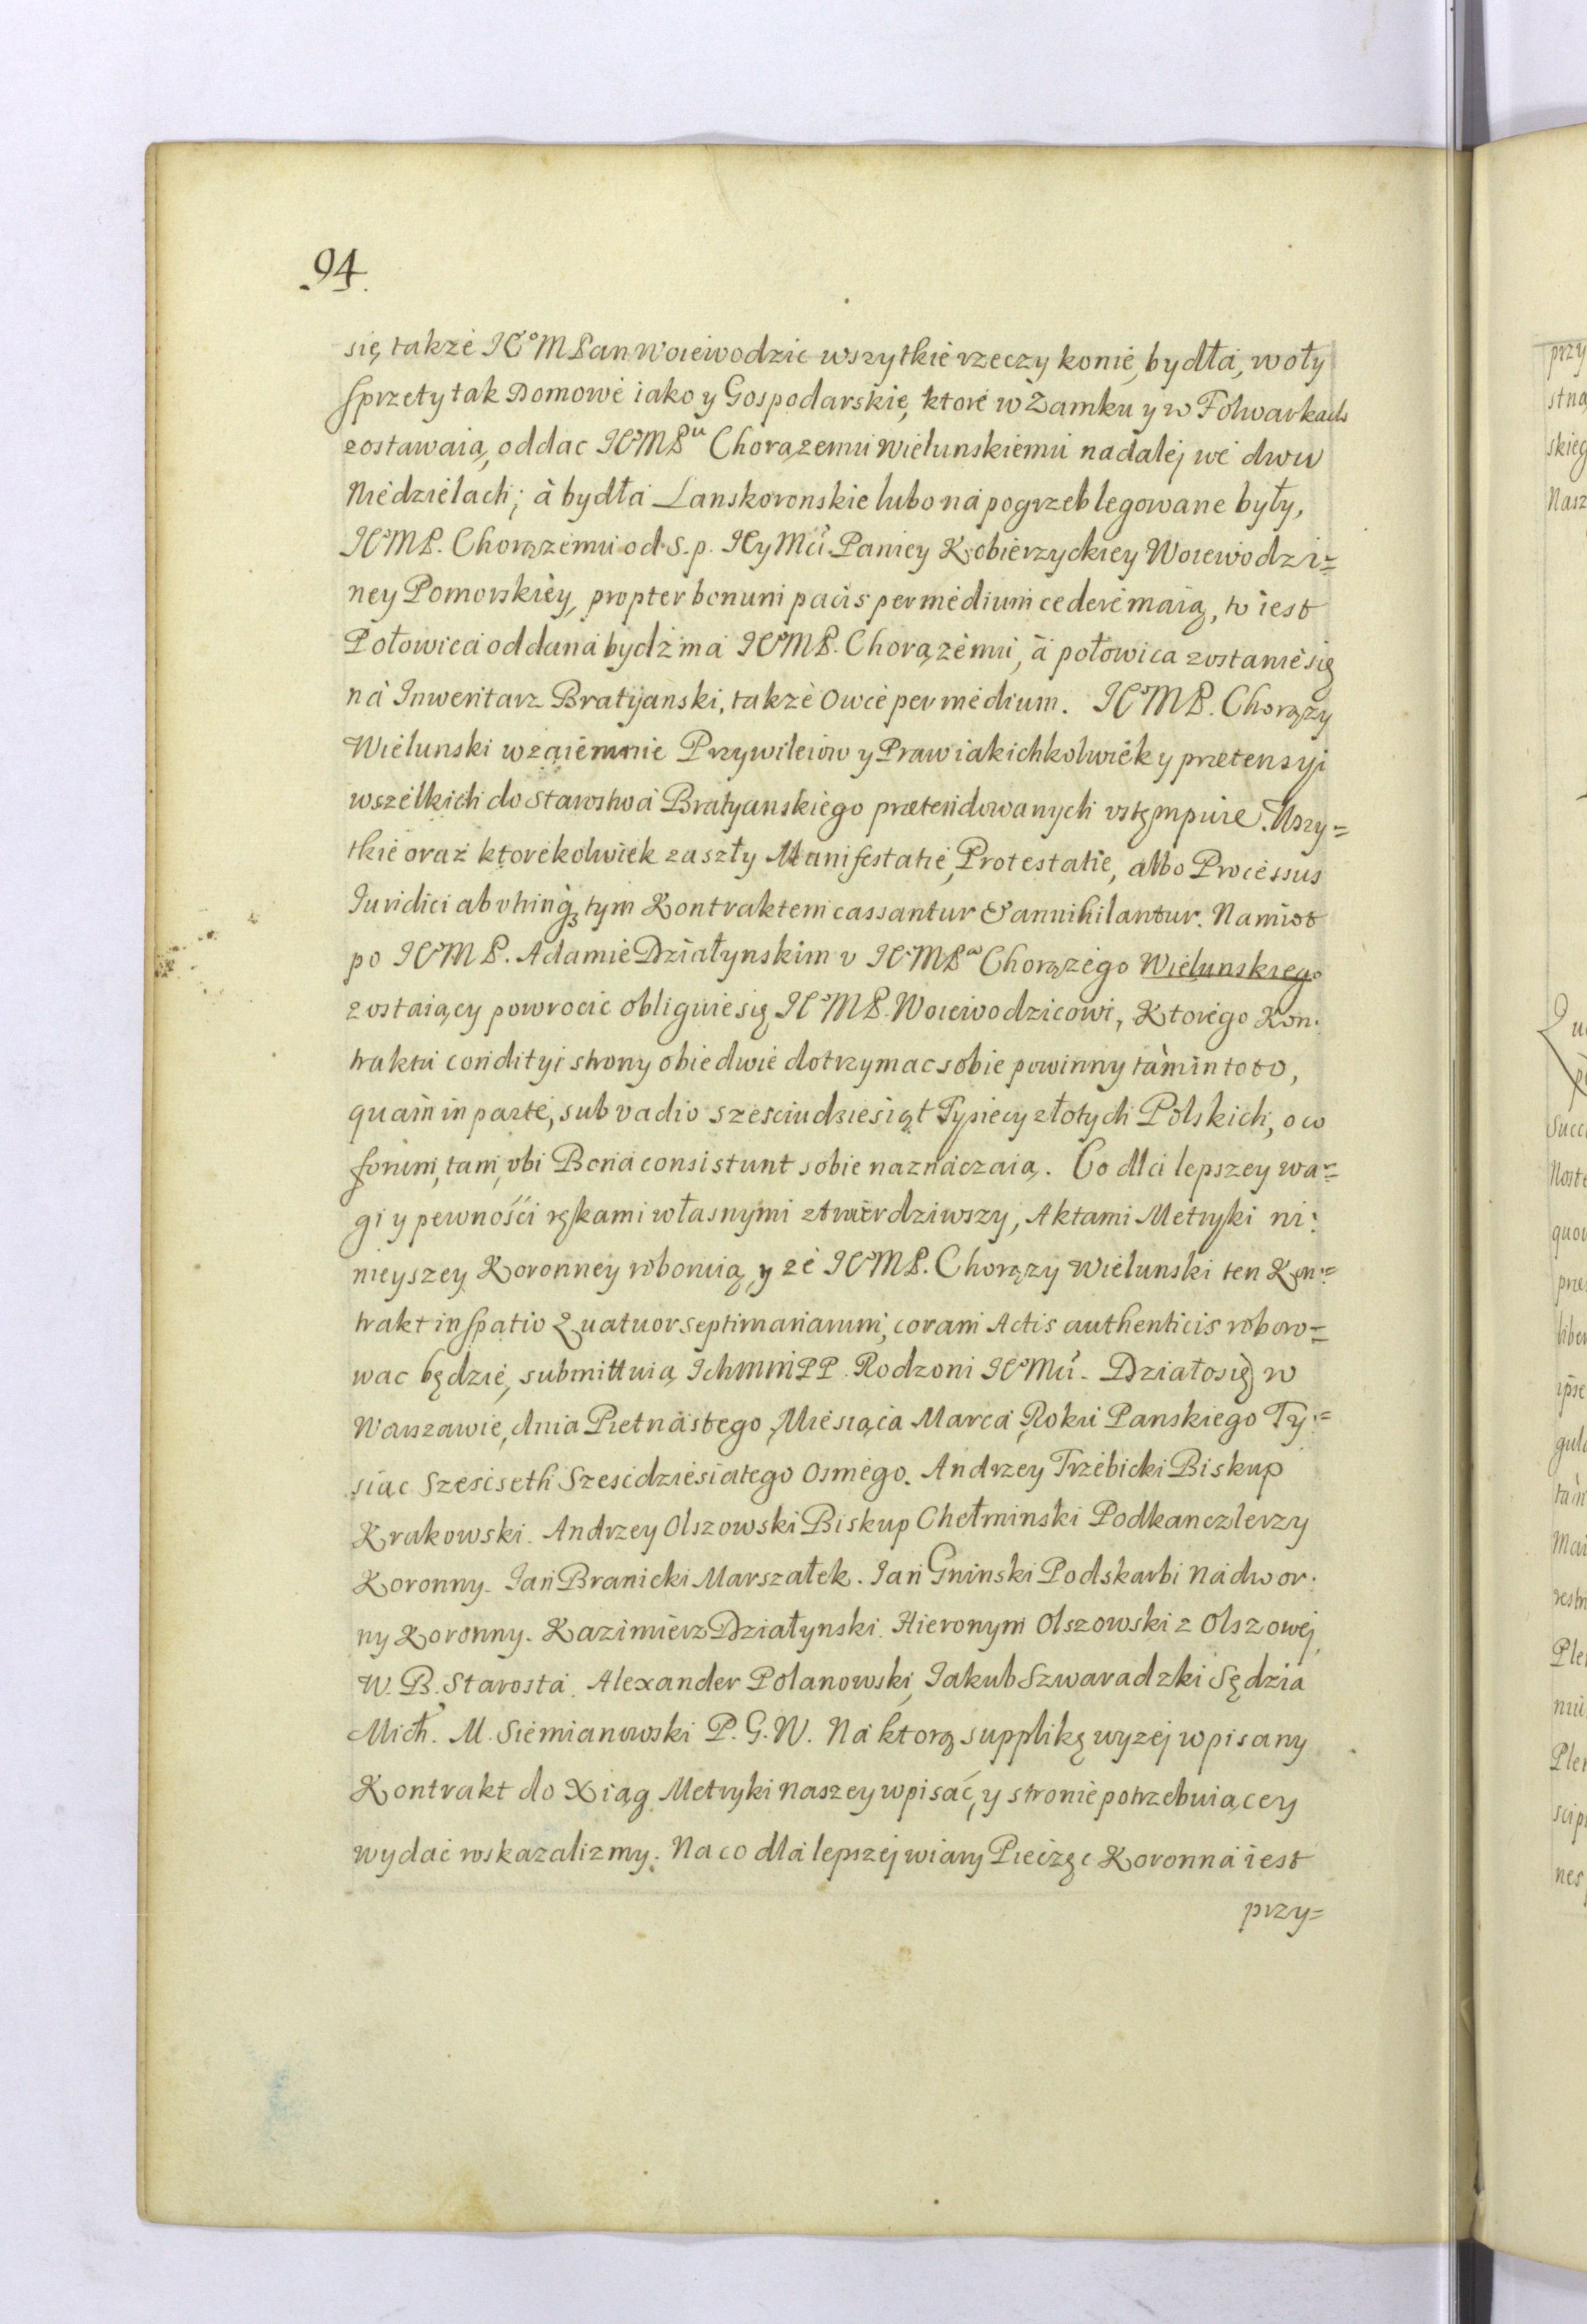 94.
się, także IC°MPan Woiewodzic wszytkie rzeczy konie, bydła, woły
sprzety tak Domowe iako y Gospodarskie, ktore w Zamku y w Folwarkach
zostawaią, oddac ICMPu Chorązemu Wielunskiemu nadalej we dwu
Niedzielach; à bydła Lanskoronskie lubo na pogrzeb legowane były,
ICMP. Chorązemu od S.p. IEy Mci Paniey Kobierzyckiey Woiewodzi=
ney Pomorskiey, propter bonum pacis per medium cedere maią, to iest
Połowica oddana bydź ma ICMP. Chorązemu, à połowica zostanie się
nà Inwentarz Bratyanski, także owce per medium. ICMP. Chorązy
Wielunski wzaiemnie Przywileiow y Praw iakichkolwiek y prætensyi
wszelkich do Starostwa Bratyanskiego prætendowanych vstęmpuie. Wszy=
tkie oraz ktorekolwiek zaszły Manifestatie, Protestatie, albo Processus
Iuridici ab vtrinq3 tym Kontraktem cassantur & annihilantur. Namiot
po ICMP. Adamie Działynskim v ICMPa Chorązego Wielunskiego
zostaiący powrocic obliguie się ICMP. Woiewodzicowi, Ktorego Kon:
traktu condityi strony obiedwie dotrzymac sobie powinny tàm in toto,
quam in parte, sub vadio szesciudziesiąt Tysiecy złotych Polskich, o co
forum, tam, vbi Bona consistunt sobie naznaczaią. Co dla lepszey wa=
gi y pewności rękami własnymi ztwierdziwszy, Aktami Metryki ni:
nieyszey Koronney roboruią, y że ICMP. Chorązy Wielunski ten Kon=
trakt in spatio Quatuor septimanarum, coram Actis authenticis roboro=
wac będzie, submittuią IchmmPP. Rodzoni ICMci. Działo się w
Warszawie, dnia Pietnastego Miesiąca Marca Roku Panskiego Ty=
siąc Szescseth Szescdziesiatego Osmego. Andrzey Trzebicki Biskup
Krakowski. Andrzey Olszowski Biskup Chełminski Podkanczlerzy
Koronny. Ian Branicki Marszałek. Ian Gninski Podskarbi Nadwor:
ny Koronny. Kazimierz Działynski. Hieronym Olszowski z Olszowej
W. B. Starosta. Alexander Polanowski, Iakub Szwaradzki Sędzia
Mich. M. Siemianowski P. G. W. Na ktorą supplikę wyzej wpisany
Kontrakt do Xiąg Metryki Naszey wpisać, y stronie potrzebuiącey
wydać roskazalizmy. Na co dla lepszej wiary Pieczęc Koronna iest
przy=